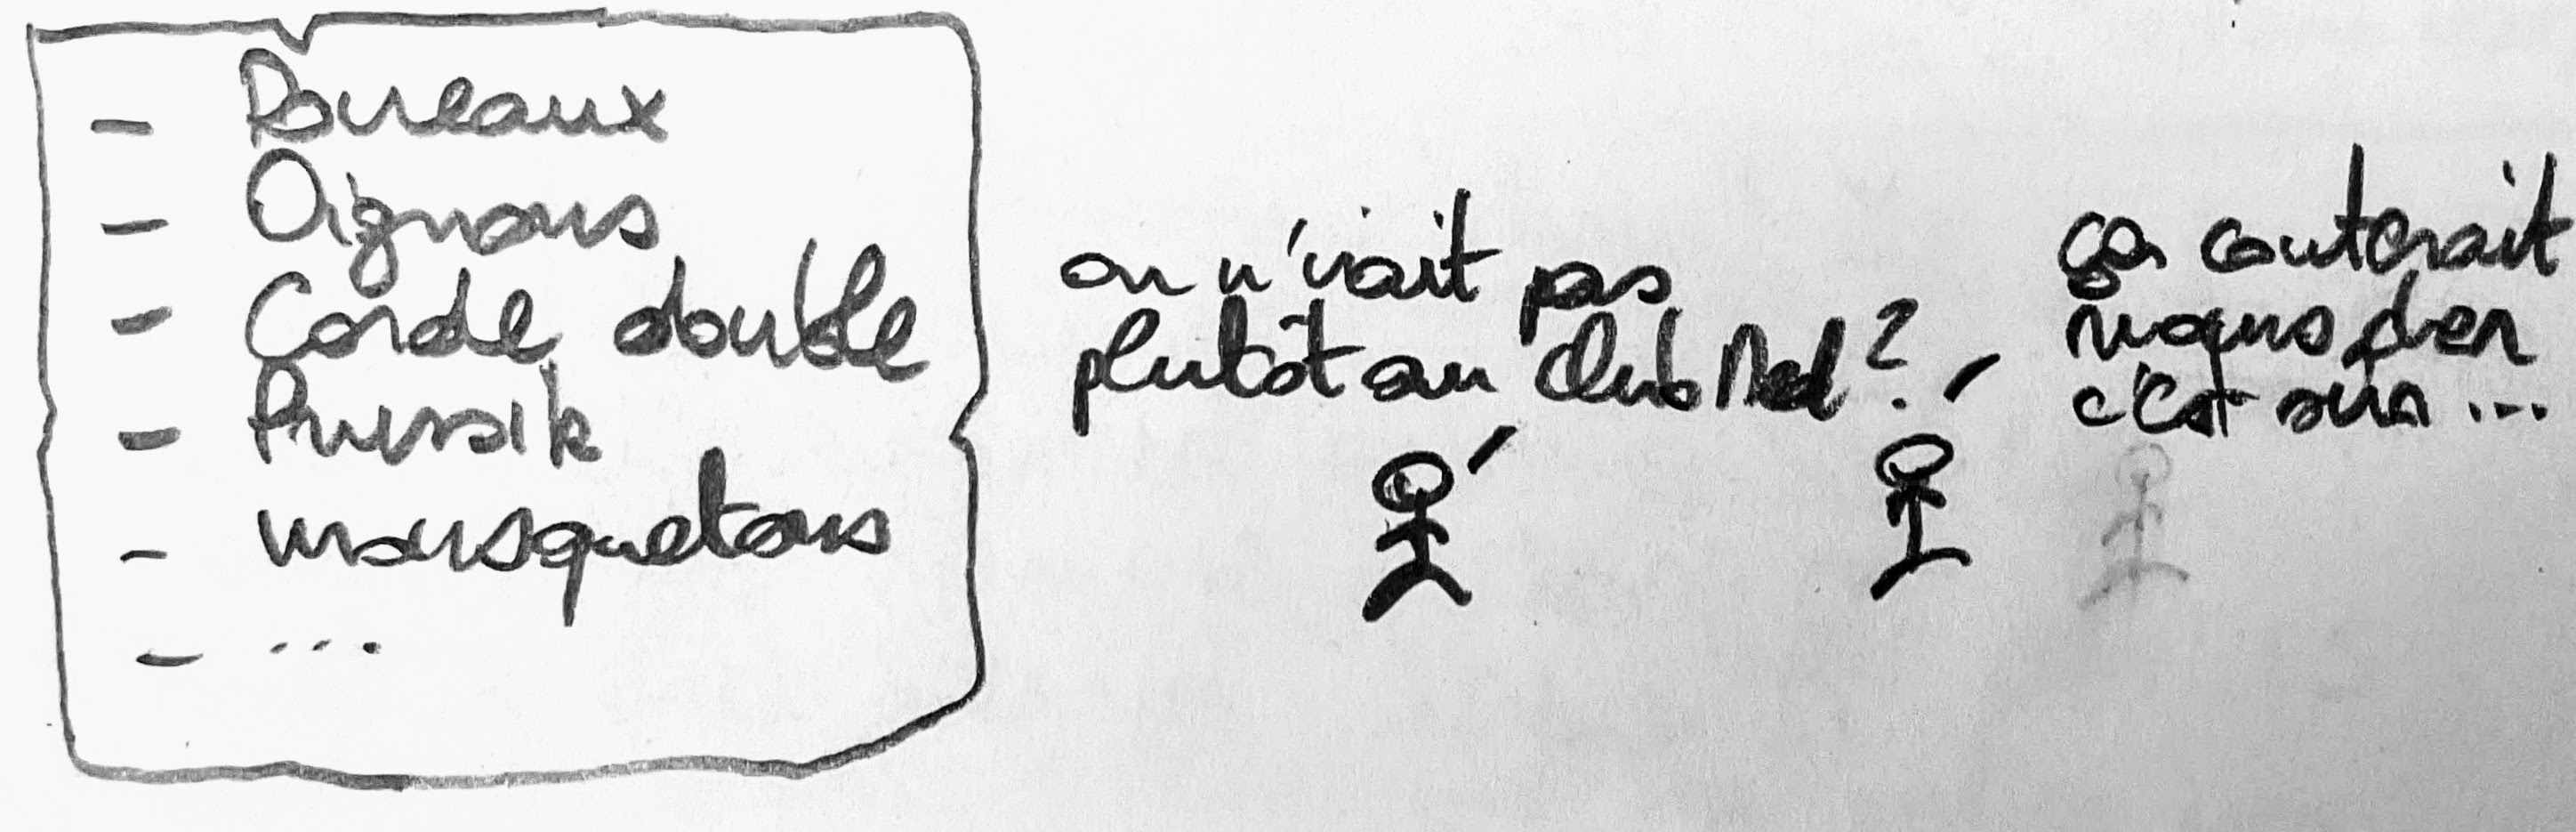 - Poireaux
- Oignons
- Corde double
- Prussik
- mousquetons
- ...
on n'irait pas
plutôt au Club Med ?
ça couterait
moins cher
c'est sûr ...